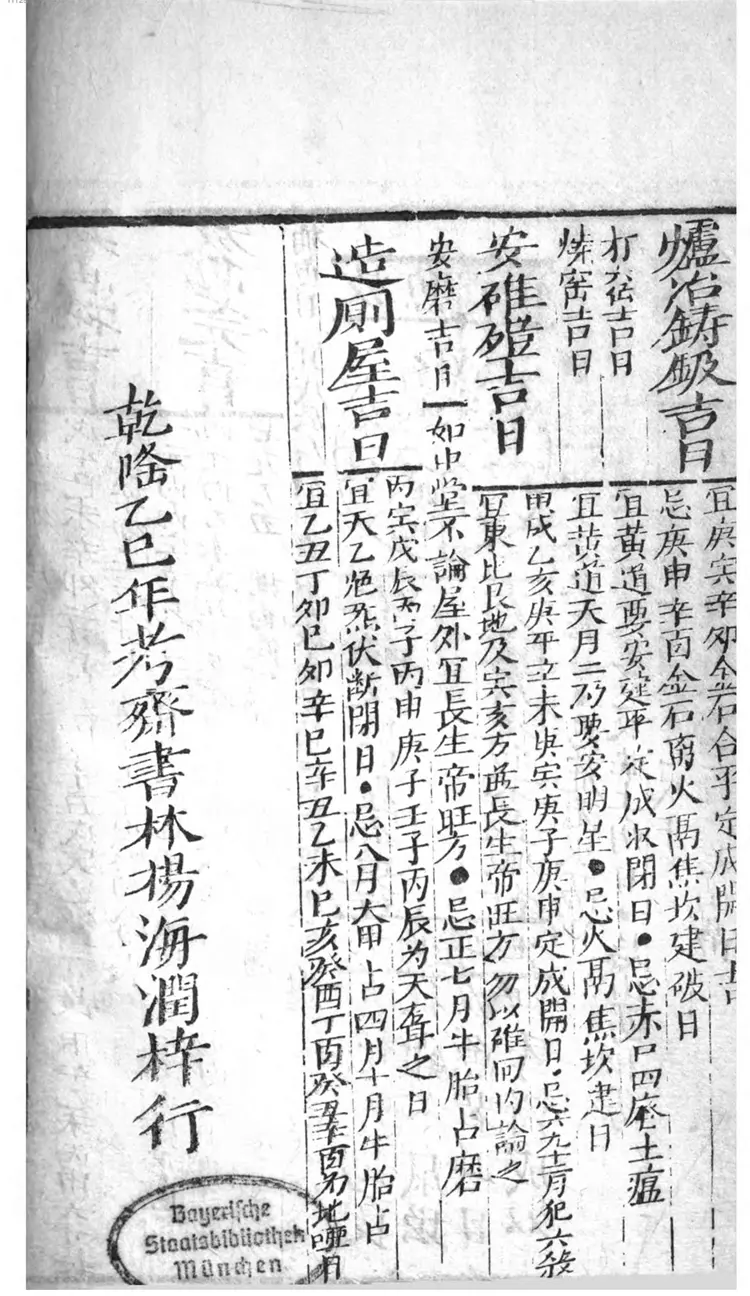 爐冶鋳鈒吉日
宜庚寅辛卯金石合平定成開日吉
忌庚申辛酉金石窮火鬲焦坎建破日
吉日
宜黃道要安建平定成收閉日・忌赤口四廢土瘟
燒窑吉日
宜黄道天月二要安明星●忌火鬲焦坎建日
安碓磑吉日
甲戌乙亥庚未庚寅庚子庚申定成開日・忌六九十二月犯六殺
宜東北艮地及寅亥方長生帝旺方勿以碓同論之
安磨吉日
如中堂不論屋外宜長生帝旺方●忌正七月牛胎占磨
造厠屋吉日
丙寅戊辰丙子丙申庚子壬子丙辰为天聋之日
宜天乙絶炁伏断閉日・忌八月六甲占四月十月牛胎占
宜乙丑丁卯巳卯辛巳辛丑乙未巳亥癸酉丁酉癸丑辛酉为地哑日
乾隆乙巳年芳齋書林楊海潤梓行
Bayerische
Staatsbibliothek
München